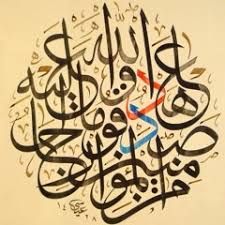 من المؤمنين رجال صدقوا ما عاهدوا الله عليه